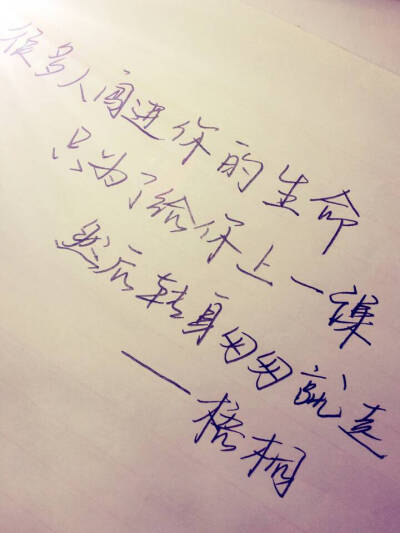 很多人闯进你的生命
只为了给你上一课
然后转身匆匆就走
——梧桐